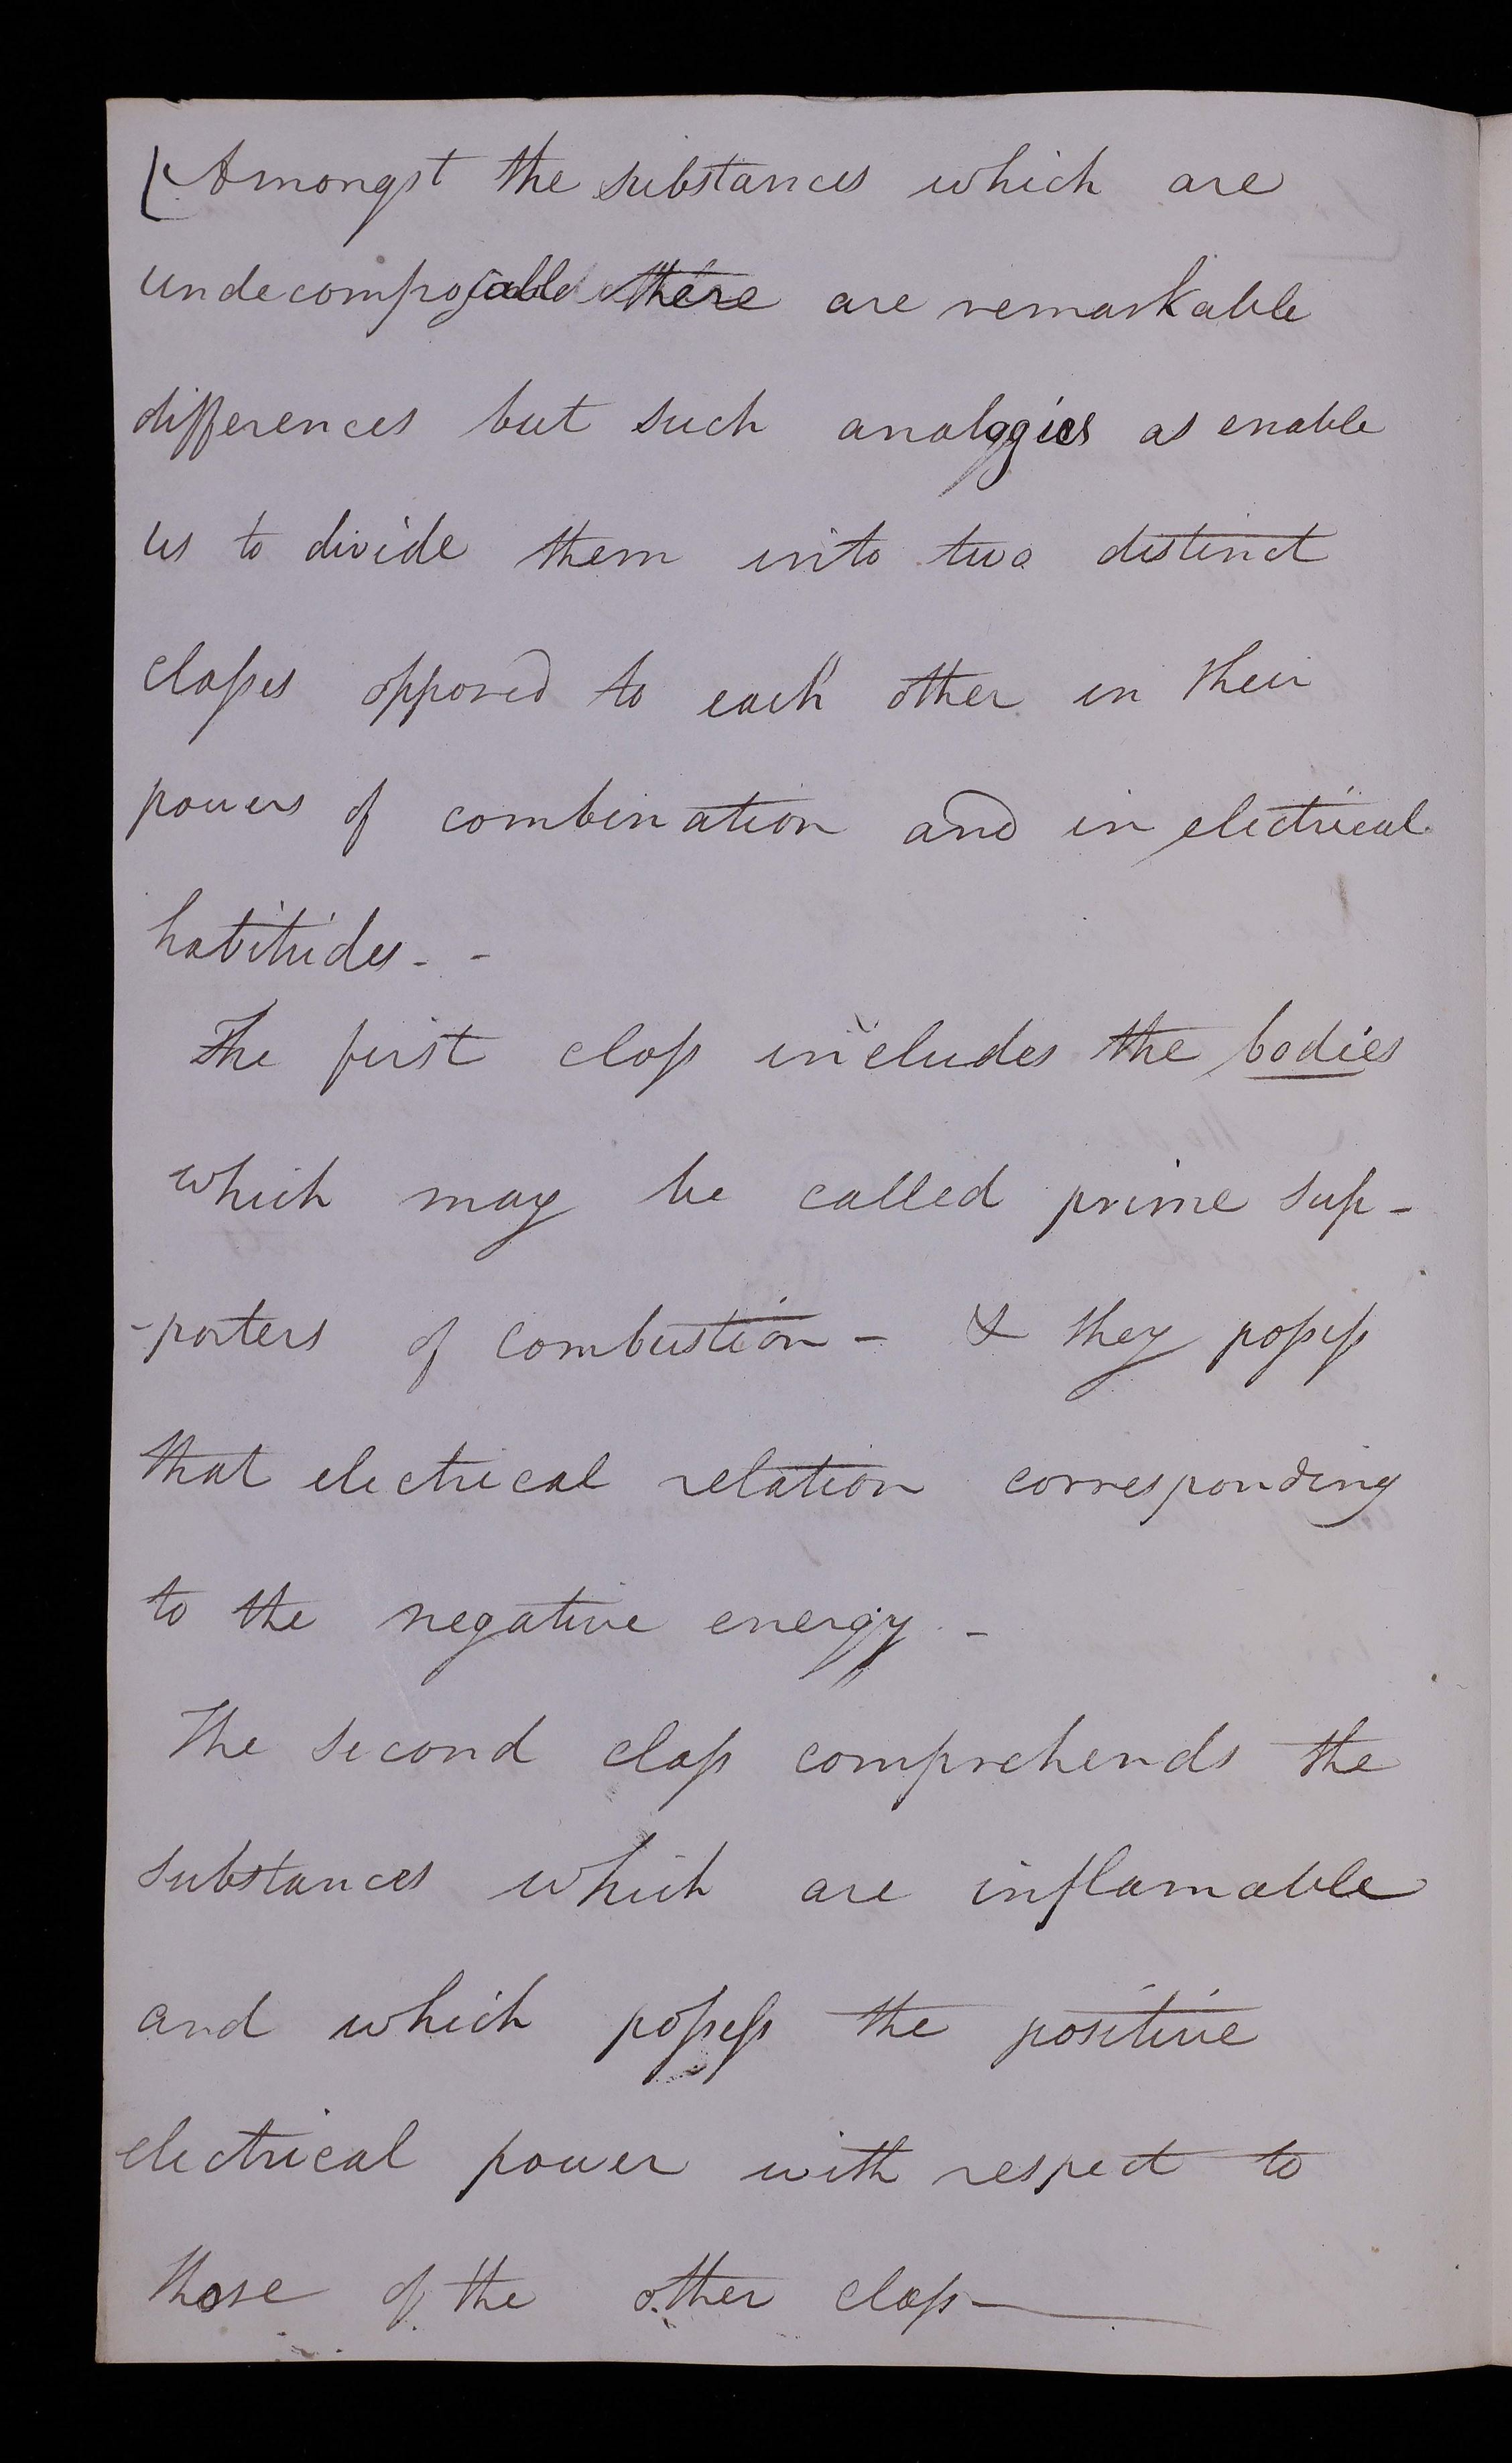 [Amongst the substances which are
undecomposable there are remarkable
differences but such analogies as enable
us to divide them into two distinct
classes opposed to each other in their
powers of combination and in electrical
habitudes - -
The first class includes the bodies
which may be called prime sup-
-porters of combustion - & they possess
that electrical relation corresponding
to the negative energy. -
The second class comprehends the
substances which are inflamable
and which possess the positive
electrical power with respect to
those of the other class -